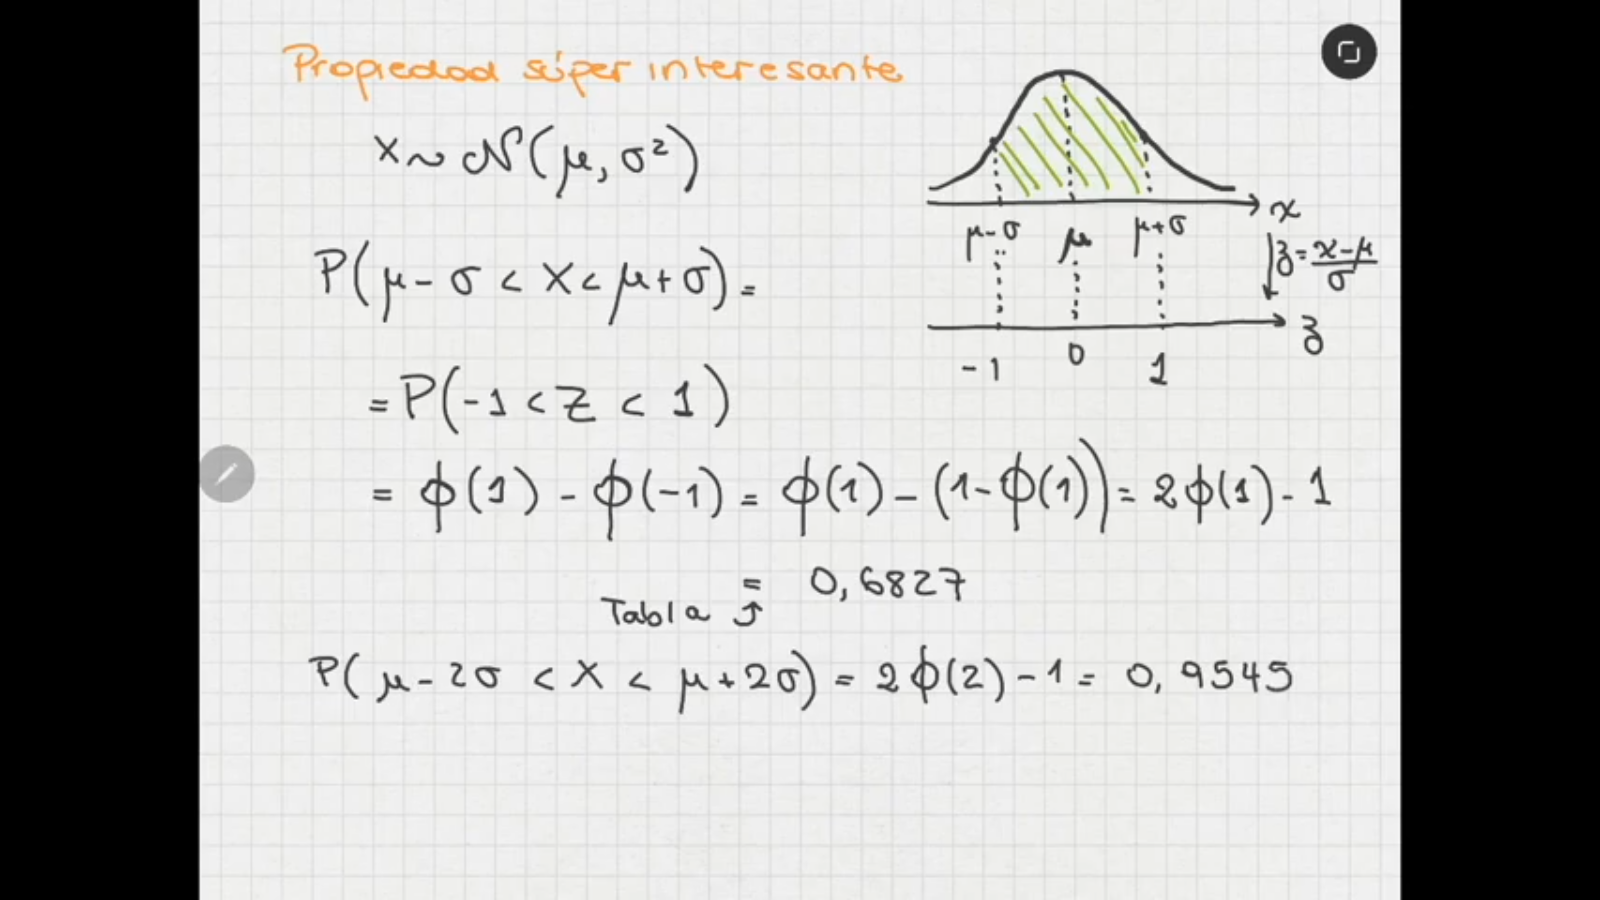 Propiedad súper interesante
X ~ N(μ, σ²)
P(μ - σ < X < μ + σ) =
= P(-1 < Z < 1)
= ϕ(1) - ϕ(-1) = ϕ(1) - (1 - ϕ(1)) = 2ϕ(1) - 1
= 0,6827
Tabla
P(μ - 2σ < X < μ + 2σ) = 2ϕ(2) - 1 = 0,9545
x
μ-σ μ μ+σ
z = x-μ / σ
z
-1 0 1